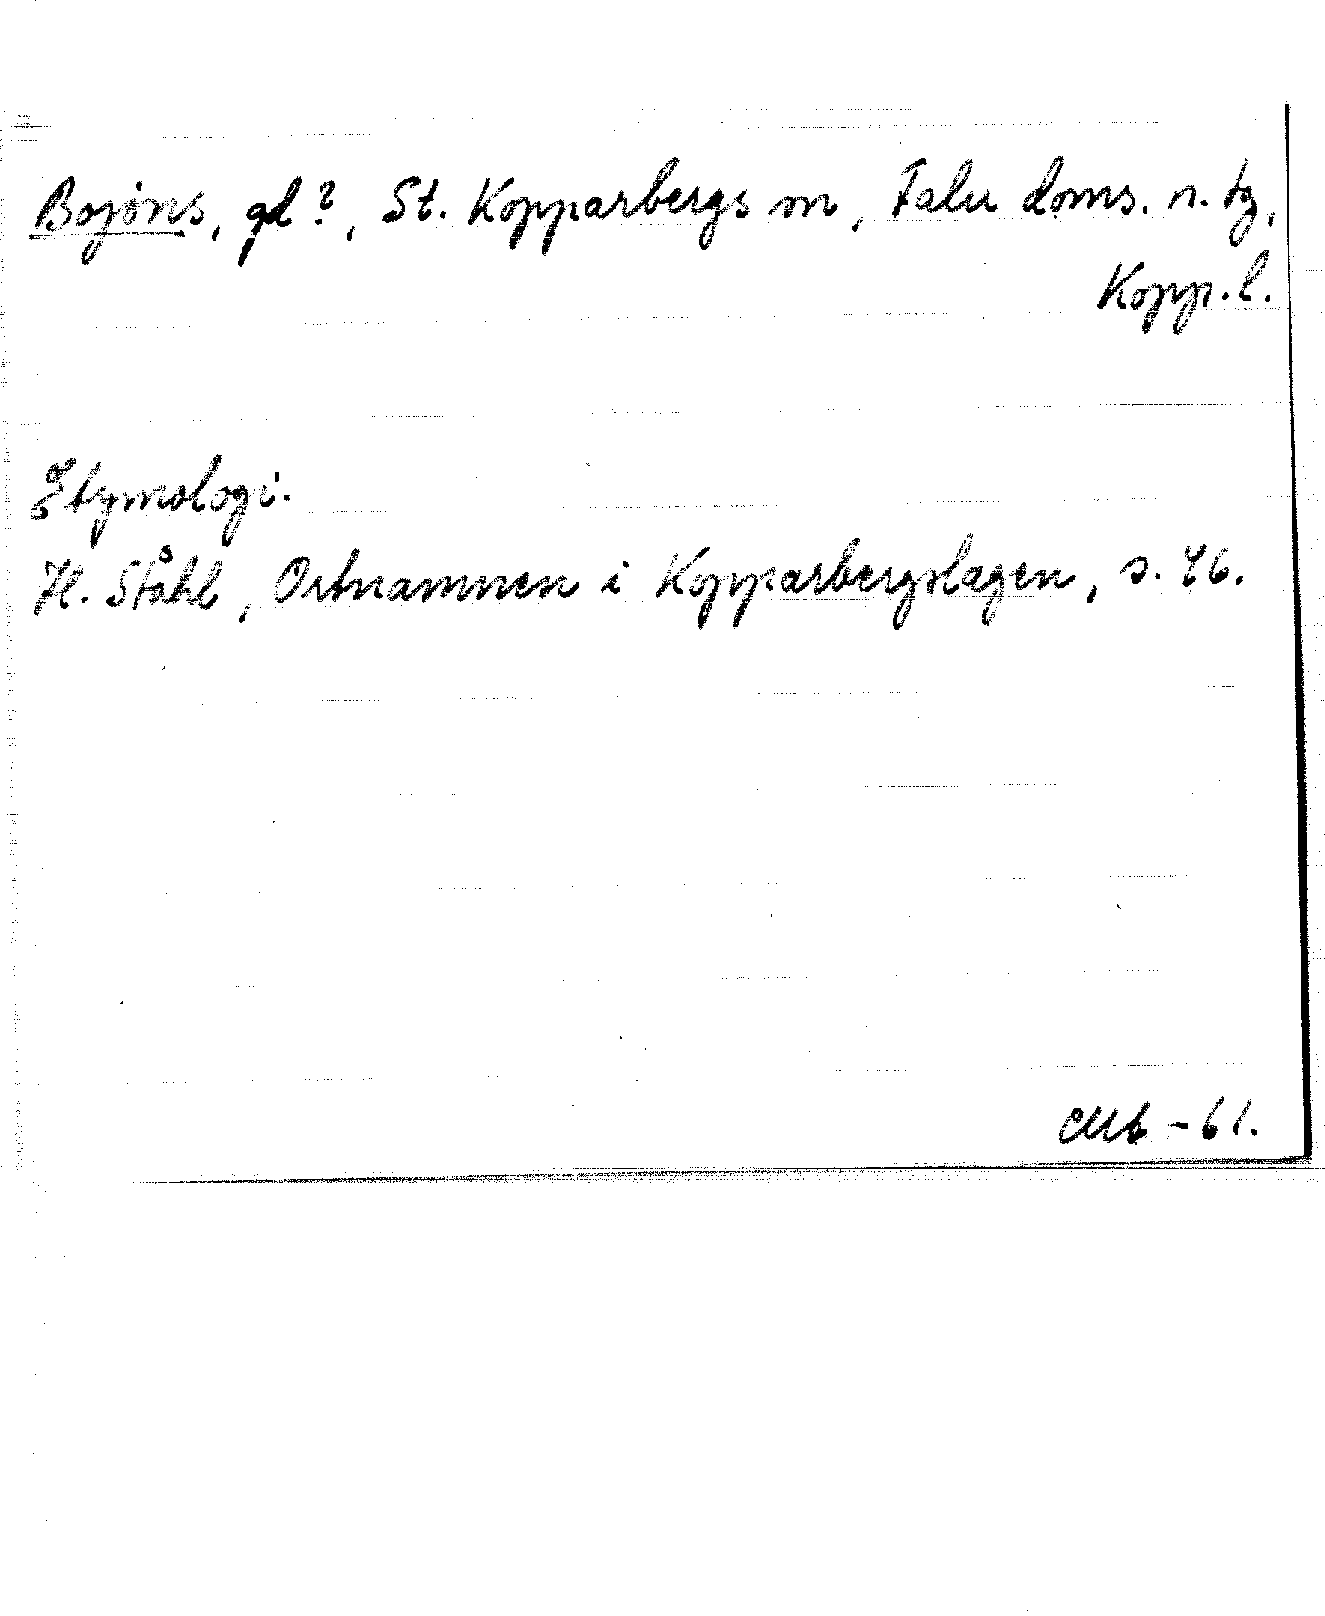 Bojöns, gd?, St. Kopparbergs sn, Falu doms. n. tg,
Kopp. l.
Etymologi.
H. Ståhl, Ortnamnen i Kopparbergslagen, s. 46.
-61.